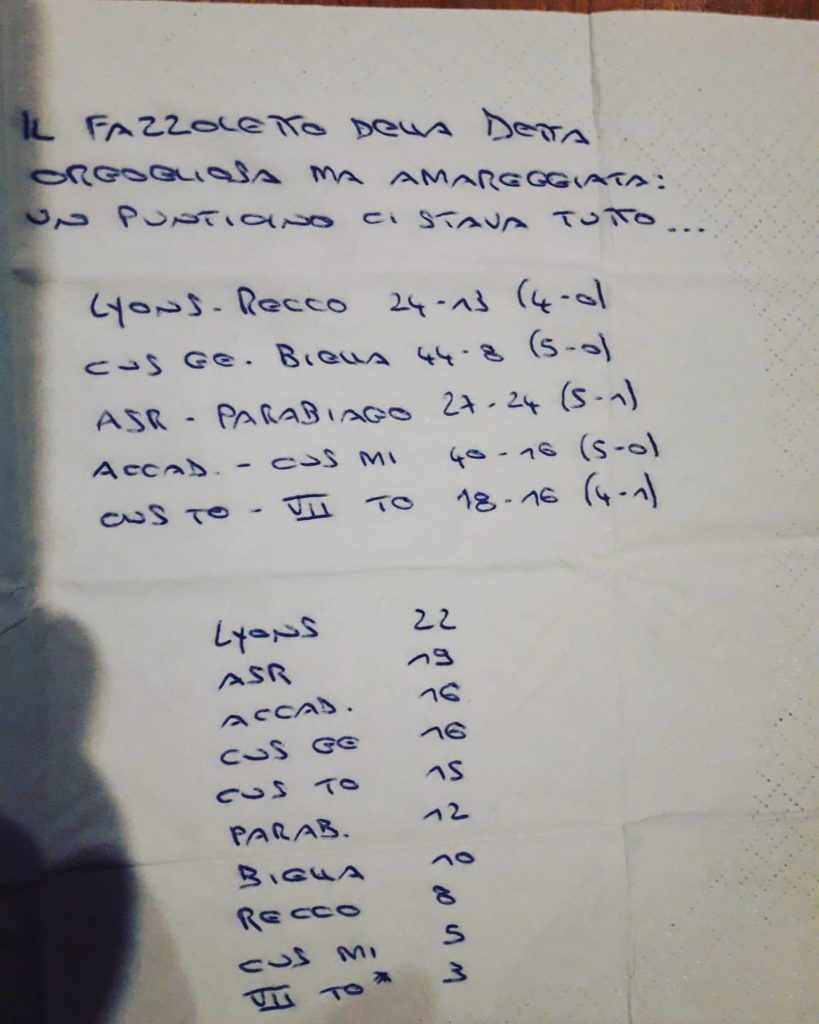 IL FAZZOLETTO DELLA DETTA
ORGOGLIOSA MA AMAREGGIATA:
UN PUNTICINO CI STAVA TUTTO...
LYONS - RECCO 24-13 (4-0)
CUS GE. BIELLA 44-8 (5-0)
ASR - PARABIAGO 27-24 (5-1)
ACCAD. - CUS MI 40-16 (5-0)
CUS TO - VII TO 18-16 (4-1)
LYONS 22
ASR 19
ACCAD. 16
CUS GE 16
CUS TO 15
PARAB. 12
BIELLA 10
RECCO 8
CUS MI 5
VII TO* 3